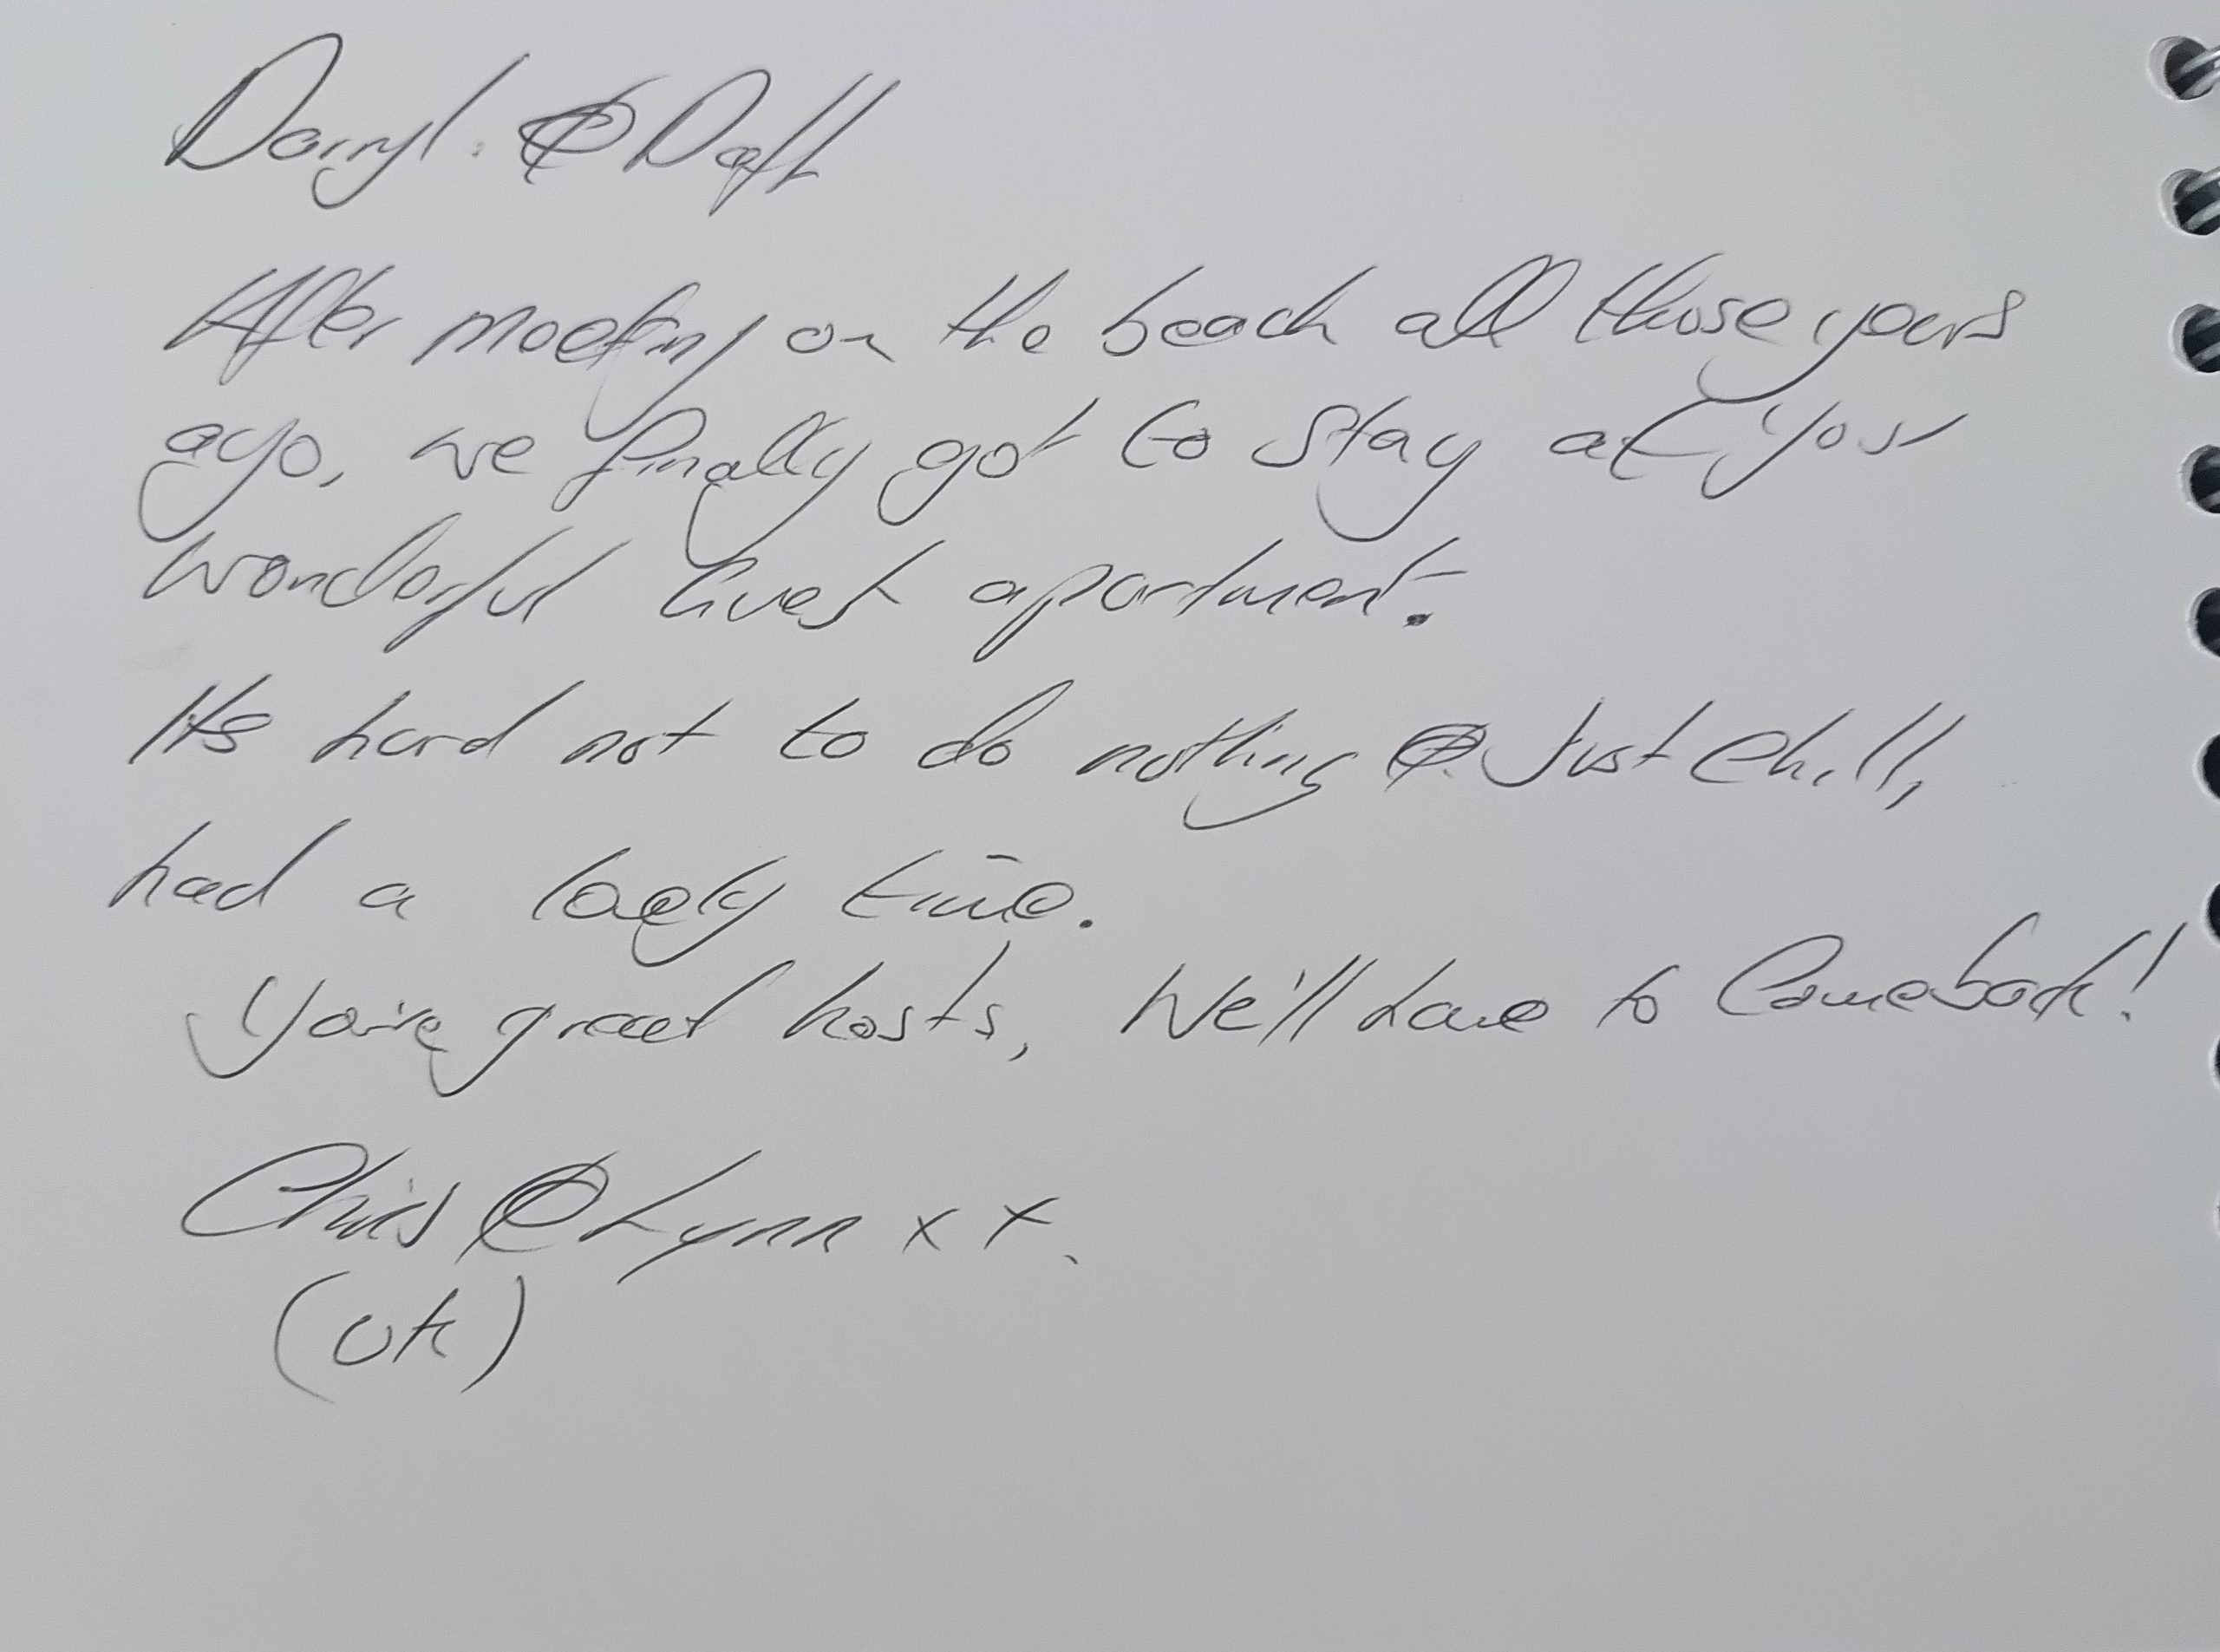 Darryl. & Daft
After meeting on the beach all those years
ago, we finally got to stay at your
wonderful Guest apartment.
Its hard not to do nothing & Just Chill,
had a lovely time.
You're great hosts, We'll have to Come back!
Chris & Lynn x x.
(UK)